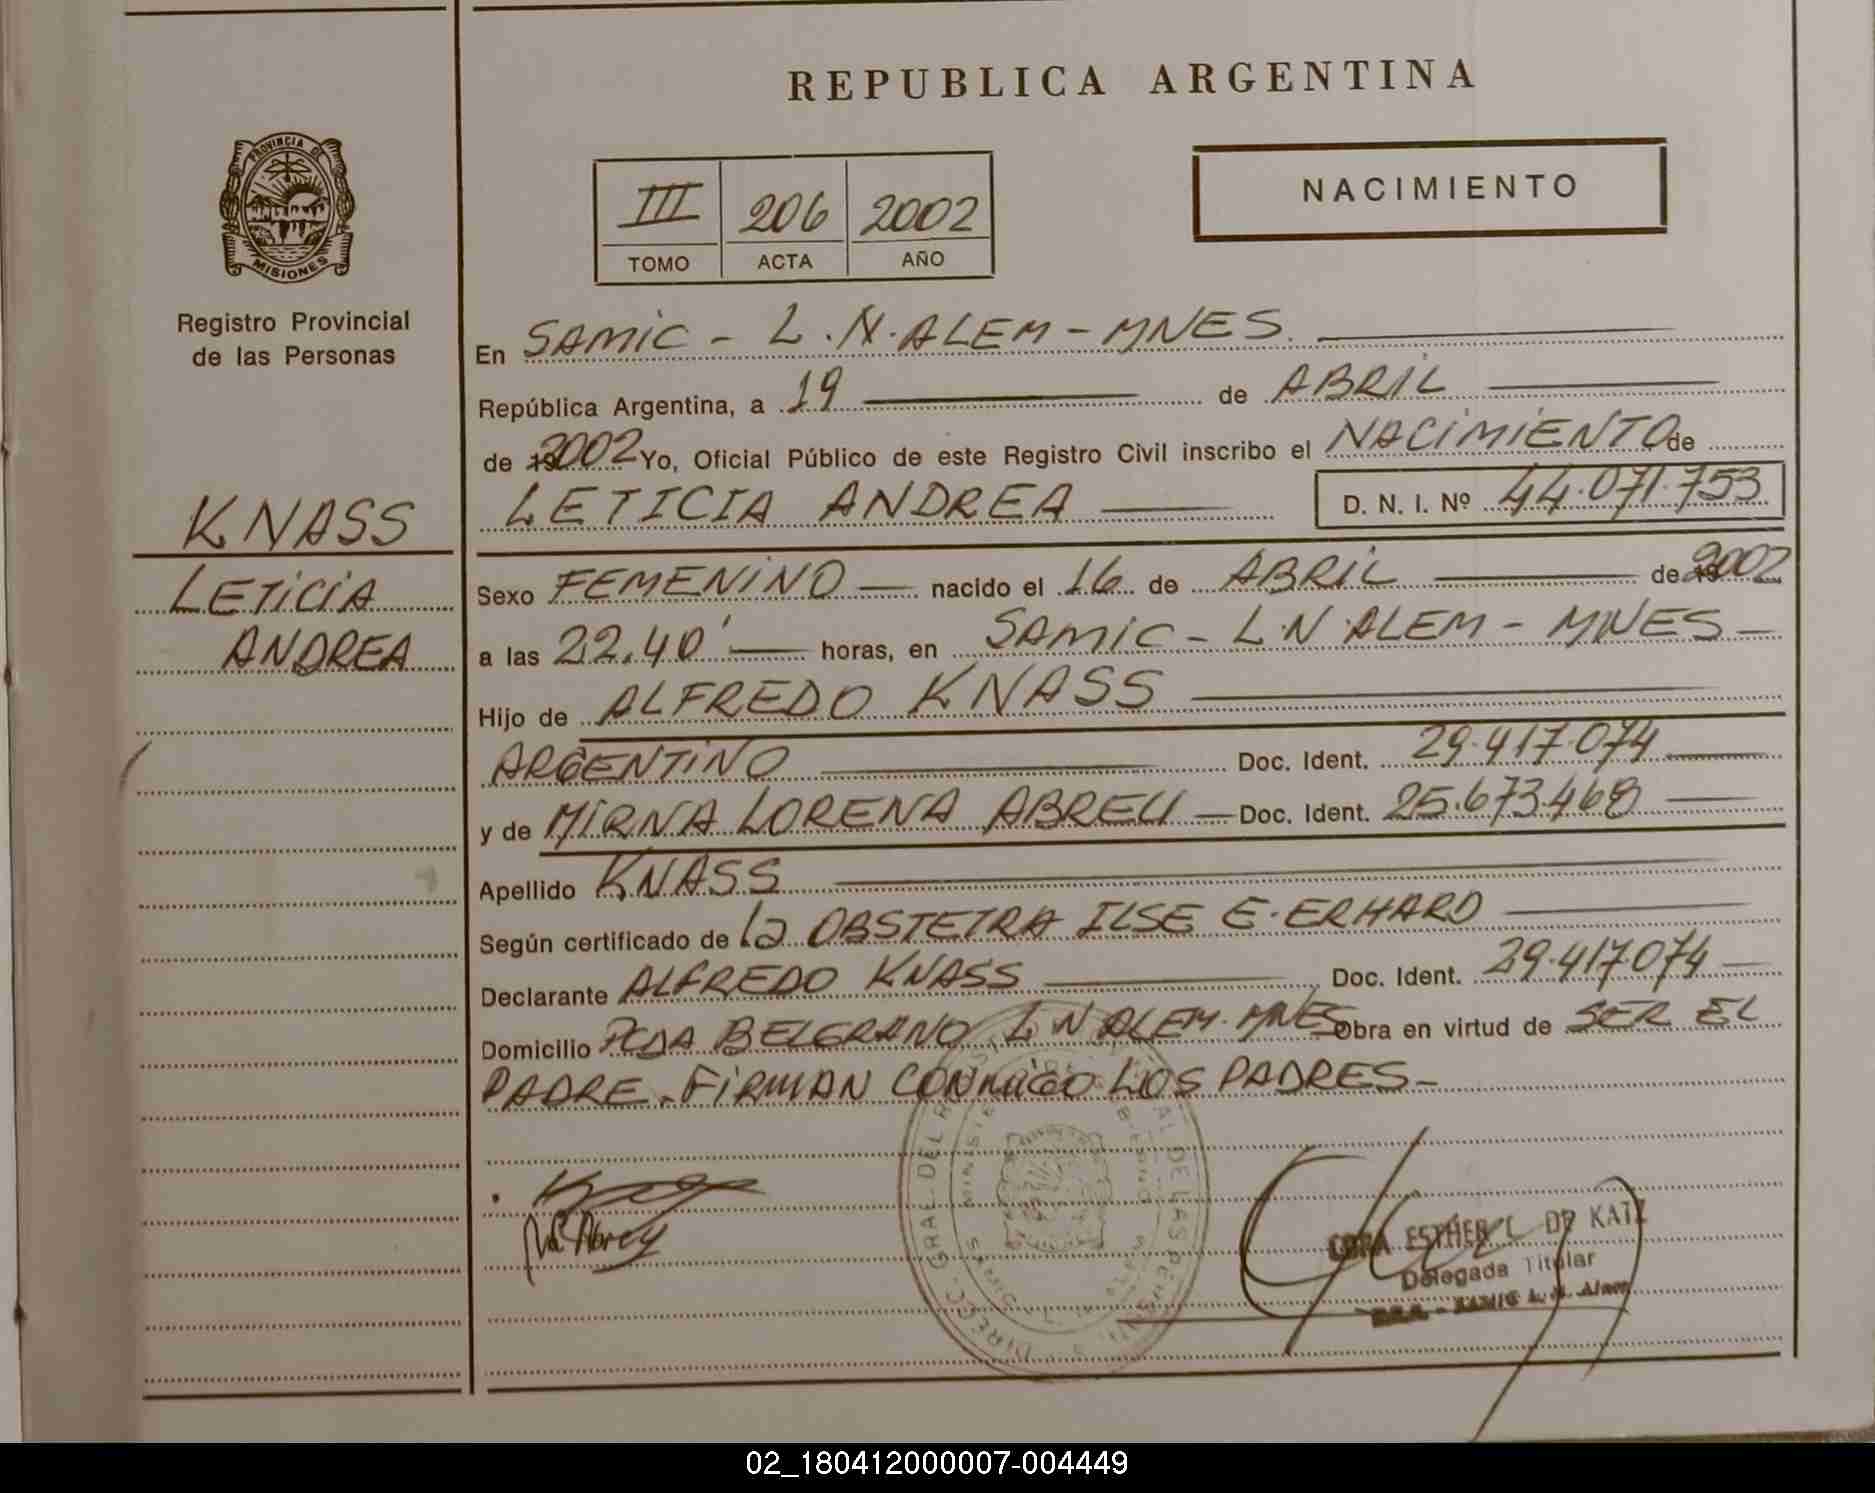 REPUBLICA ARGENTINA
PROVINCIA DE
MISIONES
Registro Provincial
de las Personas
III 206 2002
TOMO ACTA AÑO
NACIMIENTO
En SAMIC - L.N. ALEM - MNES.
República Argentina, a 19 de ABRIL
de 2002 Yo, Oficial Público de este Registro Civil inscribo el NACIMIENTO de
LETICIA ANDREA D. N. I. Nº 44.071.753
KNASS
LETICIA
ANDREA
Sexo FEMENINO nacido el 16 de ABRIL de 2002
a las 22.40' horas, en SAMIC - L.N. ALEM - MNES -
Hijo de ALFREDO KNASS
ARGENTINO Doc. Ident. 29.417.074
y de MIRNA LORENA ABREU - Doc. Ident. 25.673.468
Apellido KNASS
Según certificado de la OBSTETRA ILSE E. ERHARD
Declarante ALFREDO KNASS Doc. Ident. 29.417.074
Domicilio PCDA BELGRANO L N ALEM. MNES Obra en virtud de SER EL
PADRE. FIRMAN CONMIGO LOS PADRES -
ESTHER L. DE KATZ
Delegada Titular
SAMIC L. N. Alem
02_180412000007-004449